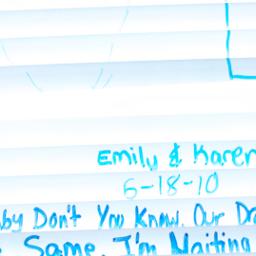 Emily & Karen
6-18-10
by Don't You Know, Our Dr
Same, I'm Waiting